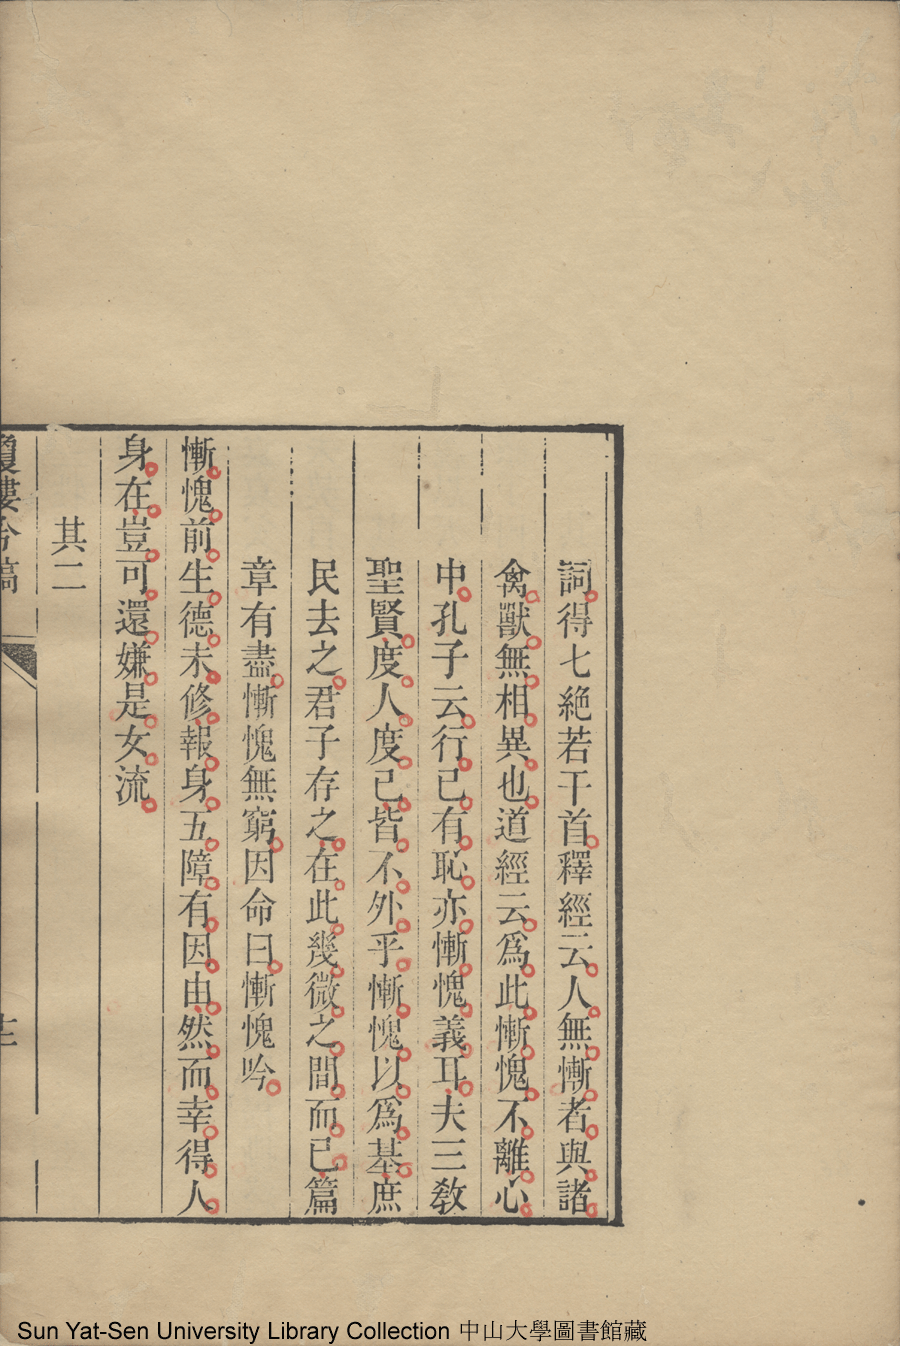 詞得七絶若干首釋經云人無慚者與諸
禽獸無相異也道經云爲此慚愧不離心
中孔子云行己有恥亦慚愧義耳夫三敎
聖賢度人度己皆不外乎慚愧以爲基庶
民去之君子存之在此幾微之間而已篇
章有盡慚愧無窮因命曰慚愧吟
慚愧前生德未修報身五障有因由然而幸得人
身在豈可還嫌是女流
其二
瓊樓吟稿
十二
Sun Yat-Sen University Library Collection 中山大學圖書館藏